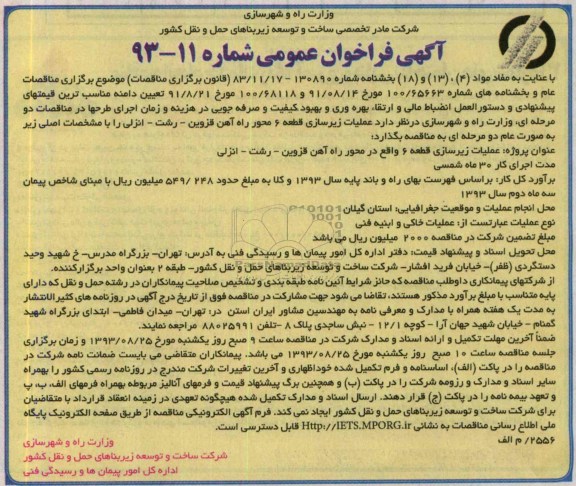 وزارت راه و شهرسازی
شرکت مادر تخصصی ساخت و توسعه زیربناهای حمل و نقل کشور
آگهی فراخوان عمومی شماره ۱۱-۹۳
با عنایت به مفاد مواد (۴) ، (۱۳) و (۱۸) بخشنامه شماره ۱۳۰۸۹۰ - ۸۳/۱۱/۱۷ (قانون برگزاری مناقصات) موضوع برگزاری مناقصات
عام و بخشنامه های شماره ۱۰۰/۶۵۶۶۳ مورخ ۹۱/۰۸/۱۴ و ۱۰۰/۶۸۱۱۸ مورخ ۹۱/۸/۲۱ تعیین دامنه مناسب ترین قیمتهای
پیشنهادی و دستورالعمل انضباط مالی و ارتقاء بهره وری و بهبود کیفیت و صرفه جویی در هزینه و زمان اجرای طرحها در مناقصات دو
مرحله ای، وزارت راه و شهرسازی درنظر دارد عملیات زیرسازی قطعه ۶ محور راه آهن قزوین - رشت - انزلی را با مشخصات اصلی زیر
به صورت عام دو مرحله ای به مناقصه بگذارد:
عنوان پروژه: عملیات زیرسازی قطعه ۶ واقع در محور راه آهن قزوین - رشت - انزلی
مدت اجرای کار ۳۰ ماه شمسی
برآورد کل کار: براساس فهرست بهای راه و باند پایه سال ۱۳۹۳ و کلا به مبلغ حدود ۵۴۹/۲۴۸ میلیون ریال با مبنای شاخص پیمان
سه ماه دوم سال ۱۳۹۳
محل انجام عملیات و موقعیت جغرافیایی: استان گیلان
نوع عملیات عبارتست از: عملیات خاکی و ابنیه فنی
مبلغ تضمین شرکت در مناقصه ۲۰۰۰ میلیون ریال می باشد
محل تحویل اسناد و پیشنهاد قیمت: دفتر اداره کل امور پیمان ها و رسیدگی فنی به آدرس: تهران- بزرگراه مدرس- خ شهید وحید
دستگردی (ظفر)- خیابان فرید افشار- شرکت ساخت و توسعه زیربناهای حمل و نقل کشور- طبقه ۲ بعنوان واحد برگزارکننده.
از شرکتهای پیمانکاری داوطلب مناقصه که حائز شرایط آئین نامه طبقه بندی و تشخیص صلاحیت پیمانکاران در رشته حمل و نقل که دارای
پایه متناسب با مبلغ برآورد مذکور هستند، تقاضا می شود جهت مشارکت در مناقصه فوق از تاریخ درج آگهی در روزنامه های کثیر الانتشار
به مدت یک هفته همراه با مدارک و معرفی نامه به مهندسین مشاور ایران استن در: تهران- میدان فاطمی- ابتدای بزرگراه شهید
گمنام - خیابان شهید جهان آرا - کوچه ۱۲/۱ - نبش ساجدی پلاک ۸ -تلفن ۸۸۰۲۵۹۹۱ مراجعه نمایند.
ضمناً آخرین مهلت تکمیل و ارائه اسناد و مدارک شرکت در مناقصه ساعت ۹ صبح روز یکشنبه مورخ ۱۳۹۳/۰۸/۲۵ و زمان برگزاری
جلسه مناقصه ساعت ۱۰ صبح روز یکشنبه مورخ ۱۳۹۳/۰۸/۲۵ می باشد. پیمانکاران متقاضی می بایست ضمانت نامه شرکت در
مناقصه را در پاکت (الف)، اساسنامه و فرم تکمیل شده خوداظهاری و آخرین تغییرات شرکت مندرج در روزنامه رسمی کشور را بهمراه
سایر اسناد و مدارک و رزومه شرکت را در پاکت (ب) و همچنین برگ پیشنهاد قیمت و فرمهای آنالیز مربوطه بهمراه فرمهای الف، ب، پ
و تعهد بیمه نامه را در پاکت (ج) قرار دهند. ارسال اسناد و مدارک تکمیل شده هیچگونه تعهدی در زمینه انعقاد قرارداد با متقاضیان
برای شرکت ساخت و توسعه زیربناهای حمل و نقل کشور ایجاد نمی کند. فرم آگهی الکترونیکی مناقصه از طریق صفحه الکترونیک پایگاه
ملی اطلاع رسانی مناقصات به نشانی Http://IETS.MPORG.ir قابل دسترسی است.
۲۵۵۶/ م الف
وزارت راه و شهرسازی
شرکت ساخت و توسعه زیربناهای حمل و نقل کشور
اداره کل امور پیمان ها و رسیدگی فنی